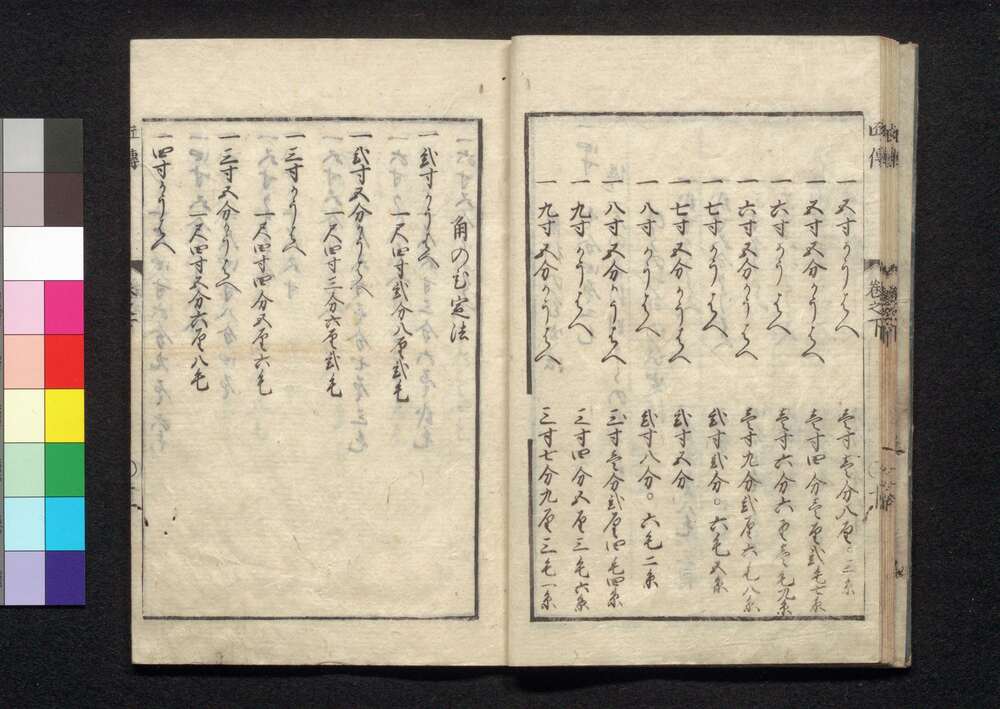 匠傳　巻之下
一　五寸かうばへ　壱寸壱分八厘〇三糸
一　五寸五分かうばへ　壱寸四分壱厘弐毛七糸
一　六寸かうばへ　壱寸六分六厘壱毛九糸
一　六寸五分かうばへ　壱寸九分弐厘六毛八糸
一　七寸かうばへ　弐寸弐分〇六毛五糸
一　七寸五分かうばへ　弐寸五分
一　八寸かうばへ　弐寸八分〇六毛二糸
一　八寸五分かうばへ　三寸壱分弐厘四毛四糸
一　九寸かうばへ　三寸四分五厘三毛六糸
一　九寸五分かうばへ　三寸七分九厘三毛一糸
角のび定法
一弐寸かうばへ
一尺四寸弐分八厘弐毛
一弐寸五分かうばへ
一尺四寸三分六厘弐毛
一三寸かうばへ
一尺四寸四分五厘六毛
一三寸五分かうばへ
一尺四寸五分六厘八毛
一四寸かうばへ